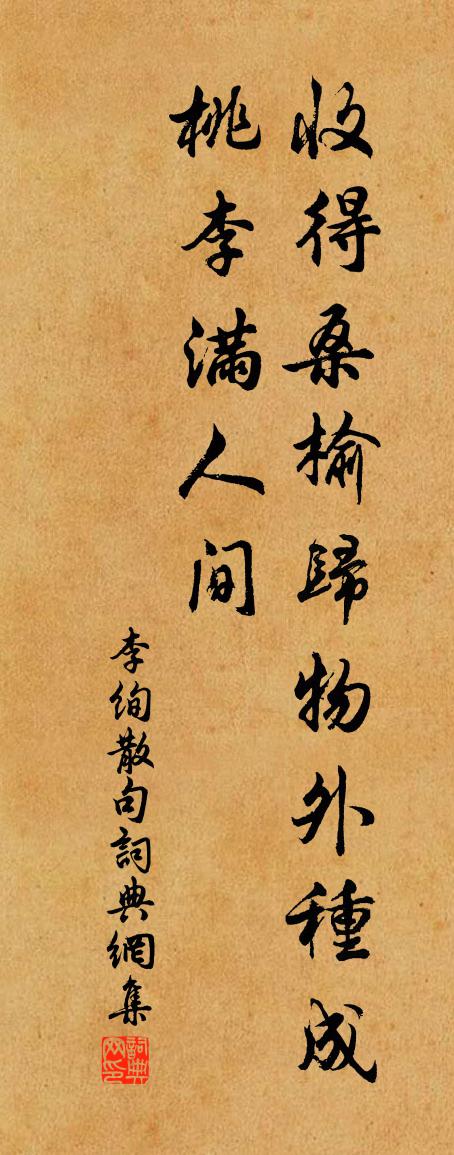 收得桑榆歸物外種成
桃李滿人间
李絢散句詞典網集
詞典网印